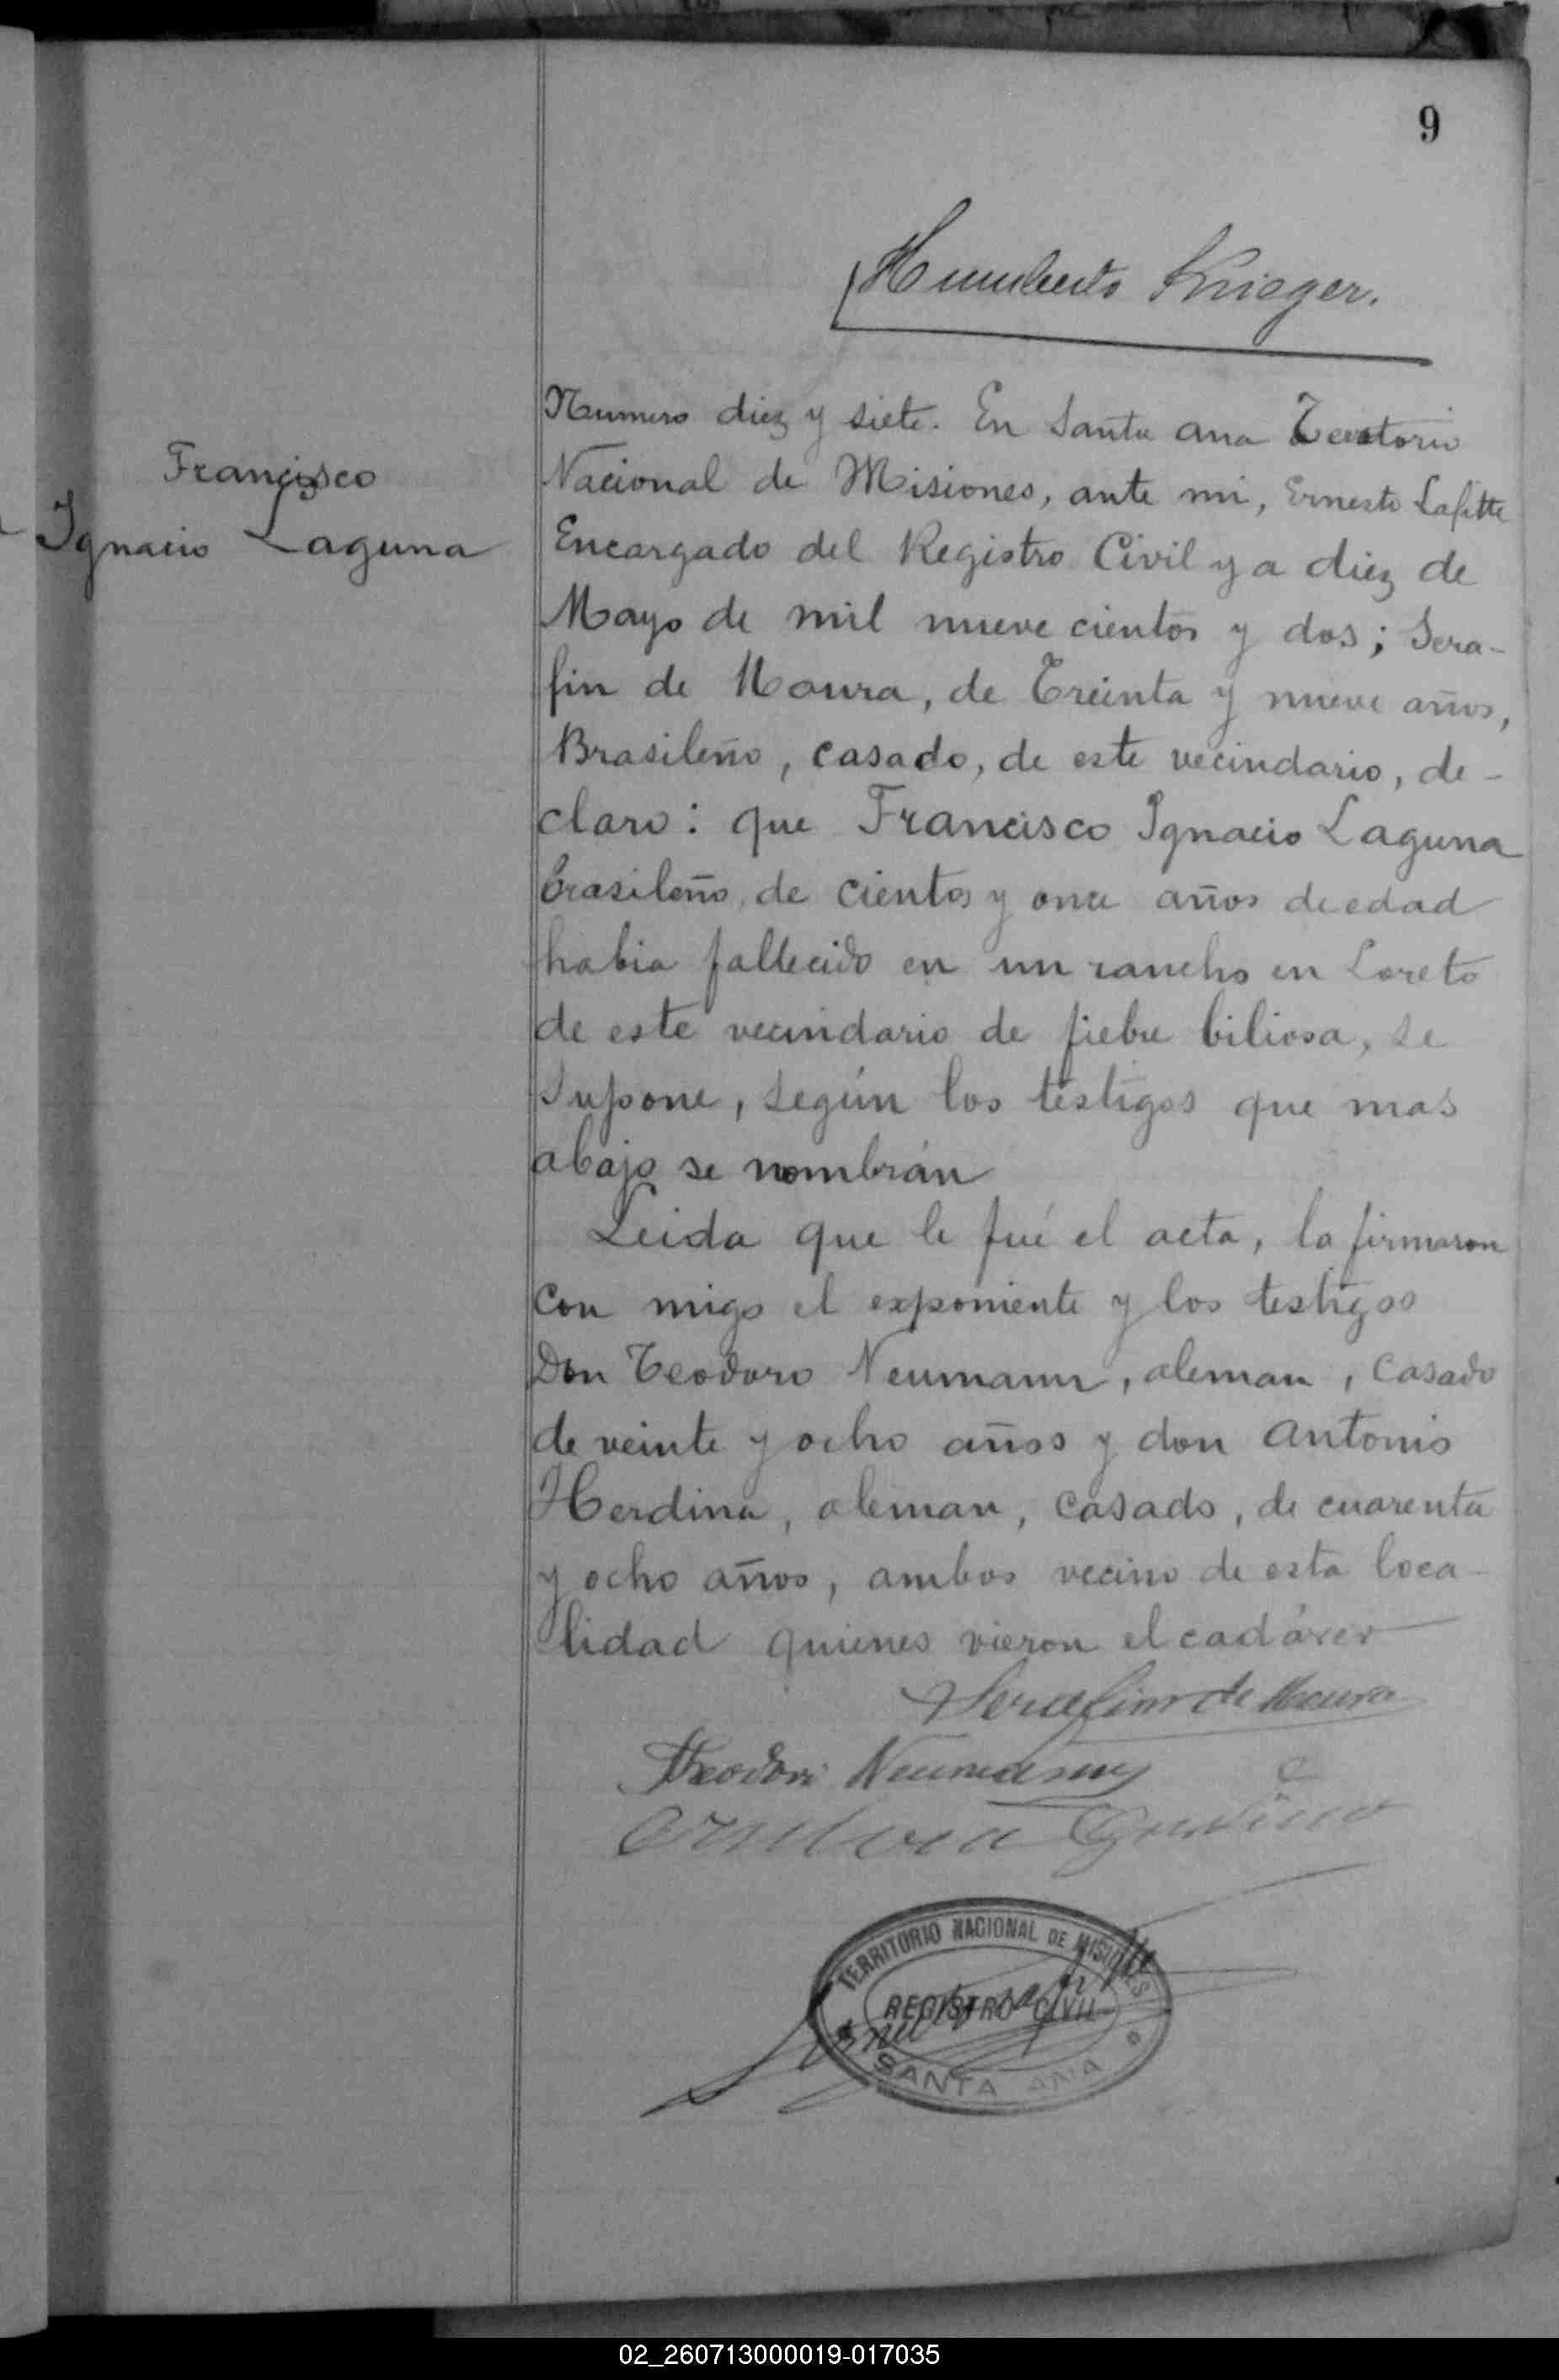 9
Humberto Krieger.
Francisco
Ignacio Laguna
Numero diez y siete. En Santa ana Teritorio
Nacional de Misiones, ante mi, Ernesto Lafitte
Encargado del Registro Civil y a diez de
Mayo de mil nueve cientos y dos; Sera-
fin de Moura, de Treinta y nueve años,
Brasileño, casado, de este vecindario, de-
claro: que Francisco Ignacio Laguna
brasileño, de cientos y once años de edad
habia fallecido en un rancho en Loreto
de este vecindario de fiebre biliosa, se
supone, según los testigos que mas
abajo se nombrán
Leida que le fué el acta, la firmaron
con migo el exponiente y los testigos
Don Teodoro Neumann, aleman, casado
de veinte y ocho años y don Antonio
Herdina, aleman, casado, de cuarenta
y ocho años, ambos vecino de esta loca-
lidad quienes vieron el cadáver
Serafim de Moura
Theodor Neumann
TERRITORIO NACIONAL DE MISIONES
REGISTRO CIVIL
SANTA ANA
02_260713000019-017035